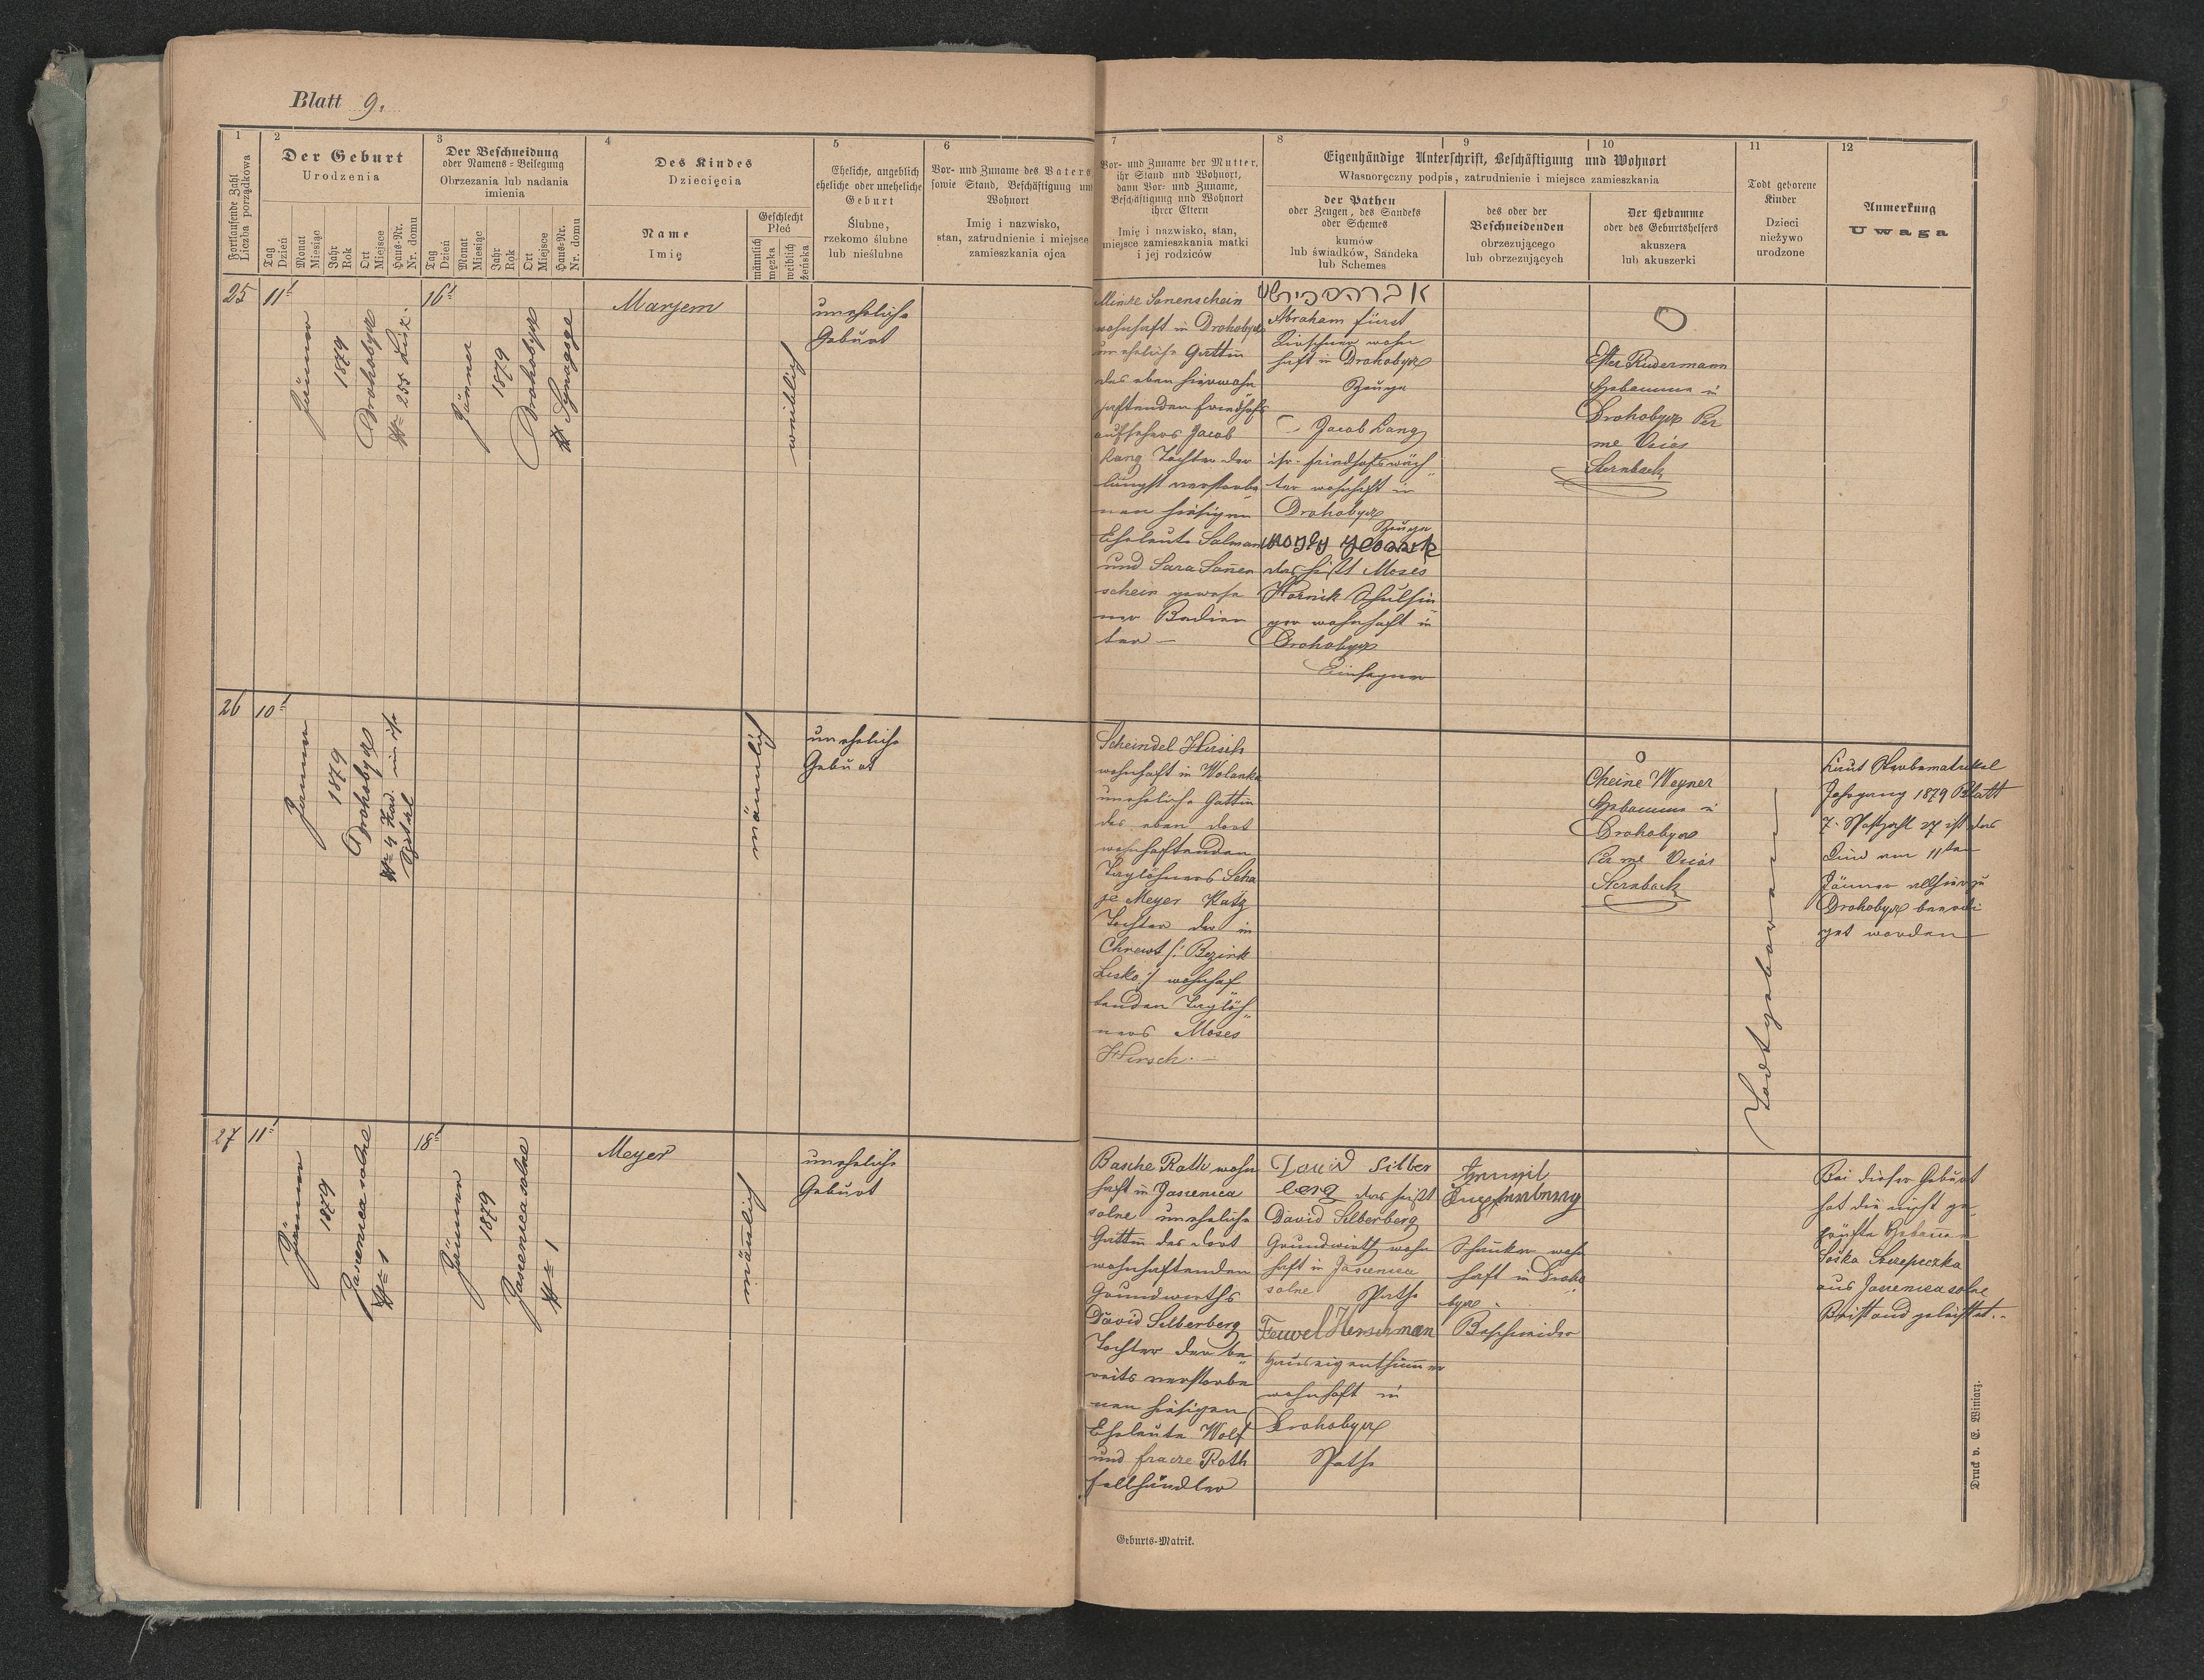 Blatt 9.
1
Fortlaufende Zahl
Liczba porządkowa
2
Der Geburt
Urodzenia
Tag
Dzień
Monat
Miesiąc
Jahr
Rok
Ort
Miejsce
Haus-Nr.
Nr. domu
3
Der Beschneidung
oder Namens-Beilegung
Obrzezania lub nadania
imienia
Tag
Dzień
Monat
Miesiąc
Jahr
Rok
Ort
Miejsce
Haus-Nr.
Nr. domu
4
Des Kindes
Dziecięcia
Name
Imię
Geschlecht
Płeć
männlich
męzka
weiblich
żeńska
5
Eheliche, angeblich
eheliche oder uneheliche
Geburt
Ślubne,
rzekomo ślubne
lub nieślubne
6
Vor- und Zuname des Vaters
sowie Stand, Beschäftigung und
Wohnort
Imię i nazwisko,
stan, zatrudnienie i miejsce
zamieszkania ojca
7
Vor- und Zuname der Mutter,
ihr Stand und Wohnort,
dann Vor- und Zuname,
Beschäftigung und Wohnort
ihrer Eltern
Imię i nazwisko, stan,
miejsce zamieszkania matki
i jej rodziców
8
9
10
Eigenhändige Unterschrift, Beschäftigung und Wohnort
Własnoręczny podpis, zatrudnienie i miejsce zamieszkania
der Pathen
oder Zeugen, des Sandeks
oder Schemes
kumów
lub świadków, Sandeka
lub Schemes
des oder der
Beschneidenden
obrzezującego
lub obrzezujących
Der Hebamme
oder des Geburtshelfers
akuszera
lub akuszerki
11
Todt geborene
Kinder
Dzieci
nieżywo
urodzone
12
Anmerkung
Uwaga
25
11t
Jänner
1879
Drohobycz
N= 255 Liz.
16t
Jänner
1879
Drohobycz
Synagoge
Marjem
weiblich
uneheliche
Geburt
Minze Sonenschein
wohnhaft in Drohobycz
uneheliche Gattin
des eben hierwohn
haftenden Friedhofs
aufsehers Jacob
Lang Tochter der
längst verstorbe
nen hiesigen
Eheleute Salman
und Sara Sonnen
schein gewese
ner Bedien
ter
Abraham Fürst
Kirschner wohn
haft in Drohobycz
Zeuge
Jacob Lang
isr. Friedhofswäch
ter wohnhaft in
Drohobycz
Zeuge
das heißt Moses
Hornik Schulsin
ger wohnhaft in
Drohobycz
Einsegner
Ester Rudermann
Hebamme in
Drohobycz Per
me Osias
Sternbach
26
10t
Jänner
1879
Drohobycz
N= 4 Zad. im isr
Spital
männlich
uneheliche
Geburt
Scheindel Hersch
wohnhaft in Wolanka
uneheliche Gattin
des eben dort
wohnhaftenden
Taglöhners Scha
je Meyer Katz
Tochter des in
Chrewt /: Bezirk
Lisko :/ wohnhaf
tenden Taglöh
ners Moses
Hersch.
Cheine Wegner
Hebamme in
Drohobycz
Per me Osias
Sternbach
Todtgeboren
Laut Sterbematrikel
Jahrgang 1879 Blatt
7. Postzahl 27 ist das
Kind am 11ten
Jänner allhier zu
Drohobycz beerdi
get worden
27
11t
Jänner
1879
Jasienica solne
N= 1
18t
Jänner
1879
Jasienica solne
N= 1
Meyer
männlich
uneheliche
Geburt
Basche Roth wohn
haft in Jasienica
solne uneheliche
Gattin des dort
wohnhaftenden
Grundwirths
David Silberberg
Tochter der be
reits verstorbe
nen hiesigen
Eheleute Wolf
und Frade Roth
Fellhändler
David Silber
berg das heißt
David Silberberg
Grundwirth wohn
haft in Jasienica
solne Pathe
Feiwel Herschman
Hauseigenthümer
wohnhaft in
Drohobycz
Pathe
Schänker wohn
haft in Droho
bycz.
Beschneider
Bei dieser Geburt
hat die nicht ge
prüfte Hebamme
aus Jasienica solne
Beistand geleistet.
Geburts-Matrik.
Druck v. E. Winiarz.